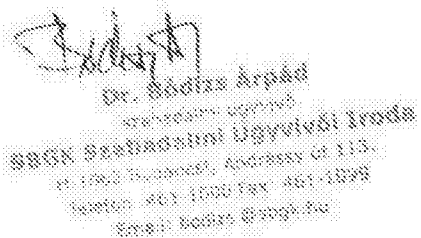 Dr. Bódizs Árpád
szabadalmi ügyvivő
SBGK Szabadalmi Ügyvivői Iroda
H-1062 Budapest, Andrássy út 113.
Telefon: 461-1000 Fax: 461-1099
Email: bodizs@sbgk.hu